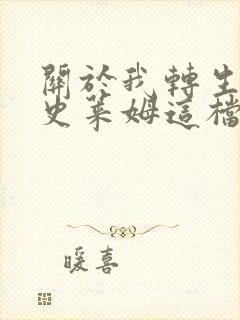 關於我轉生
史萊姆這檔
暖喜